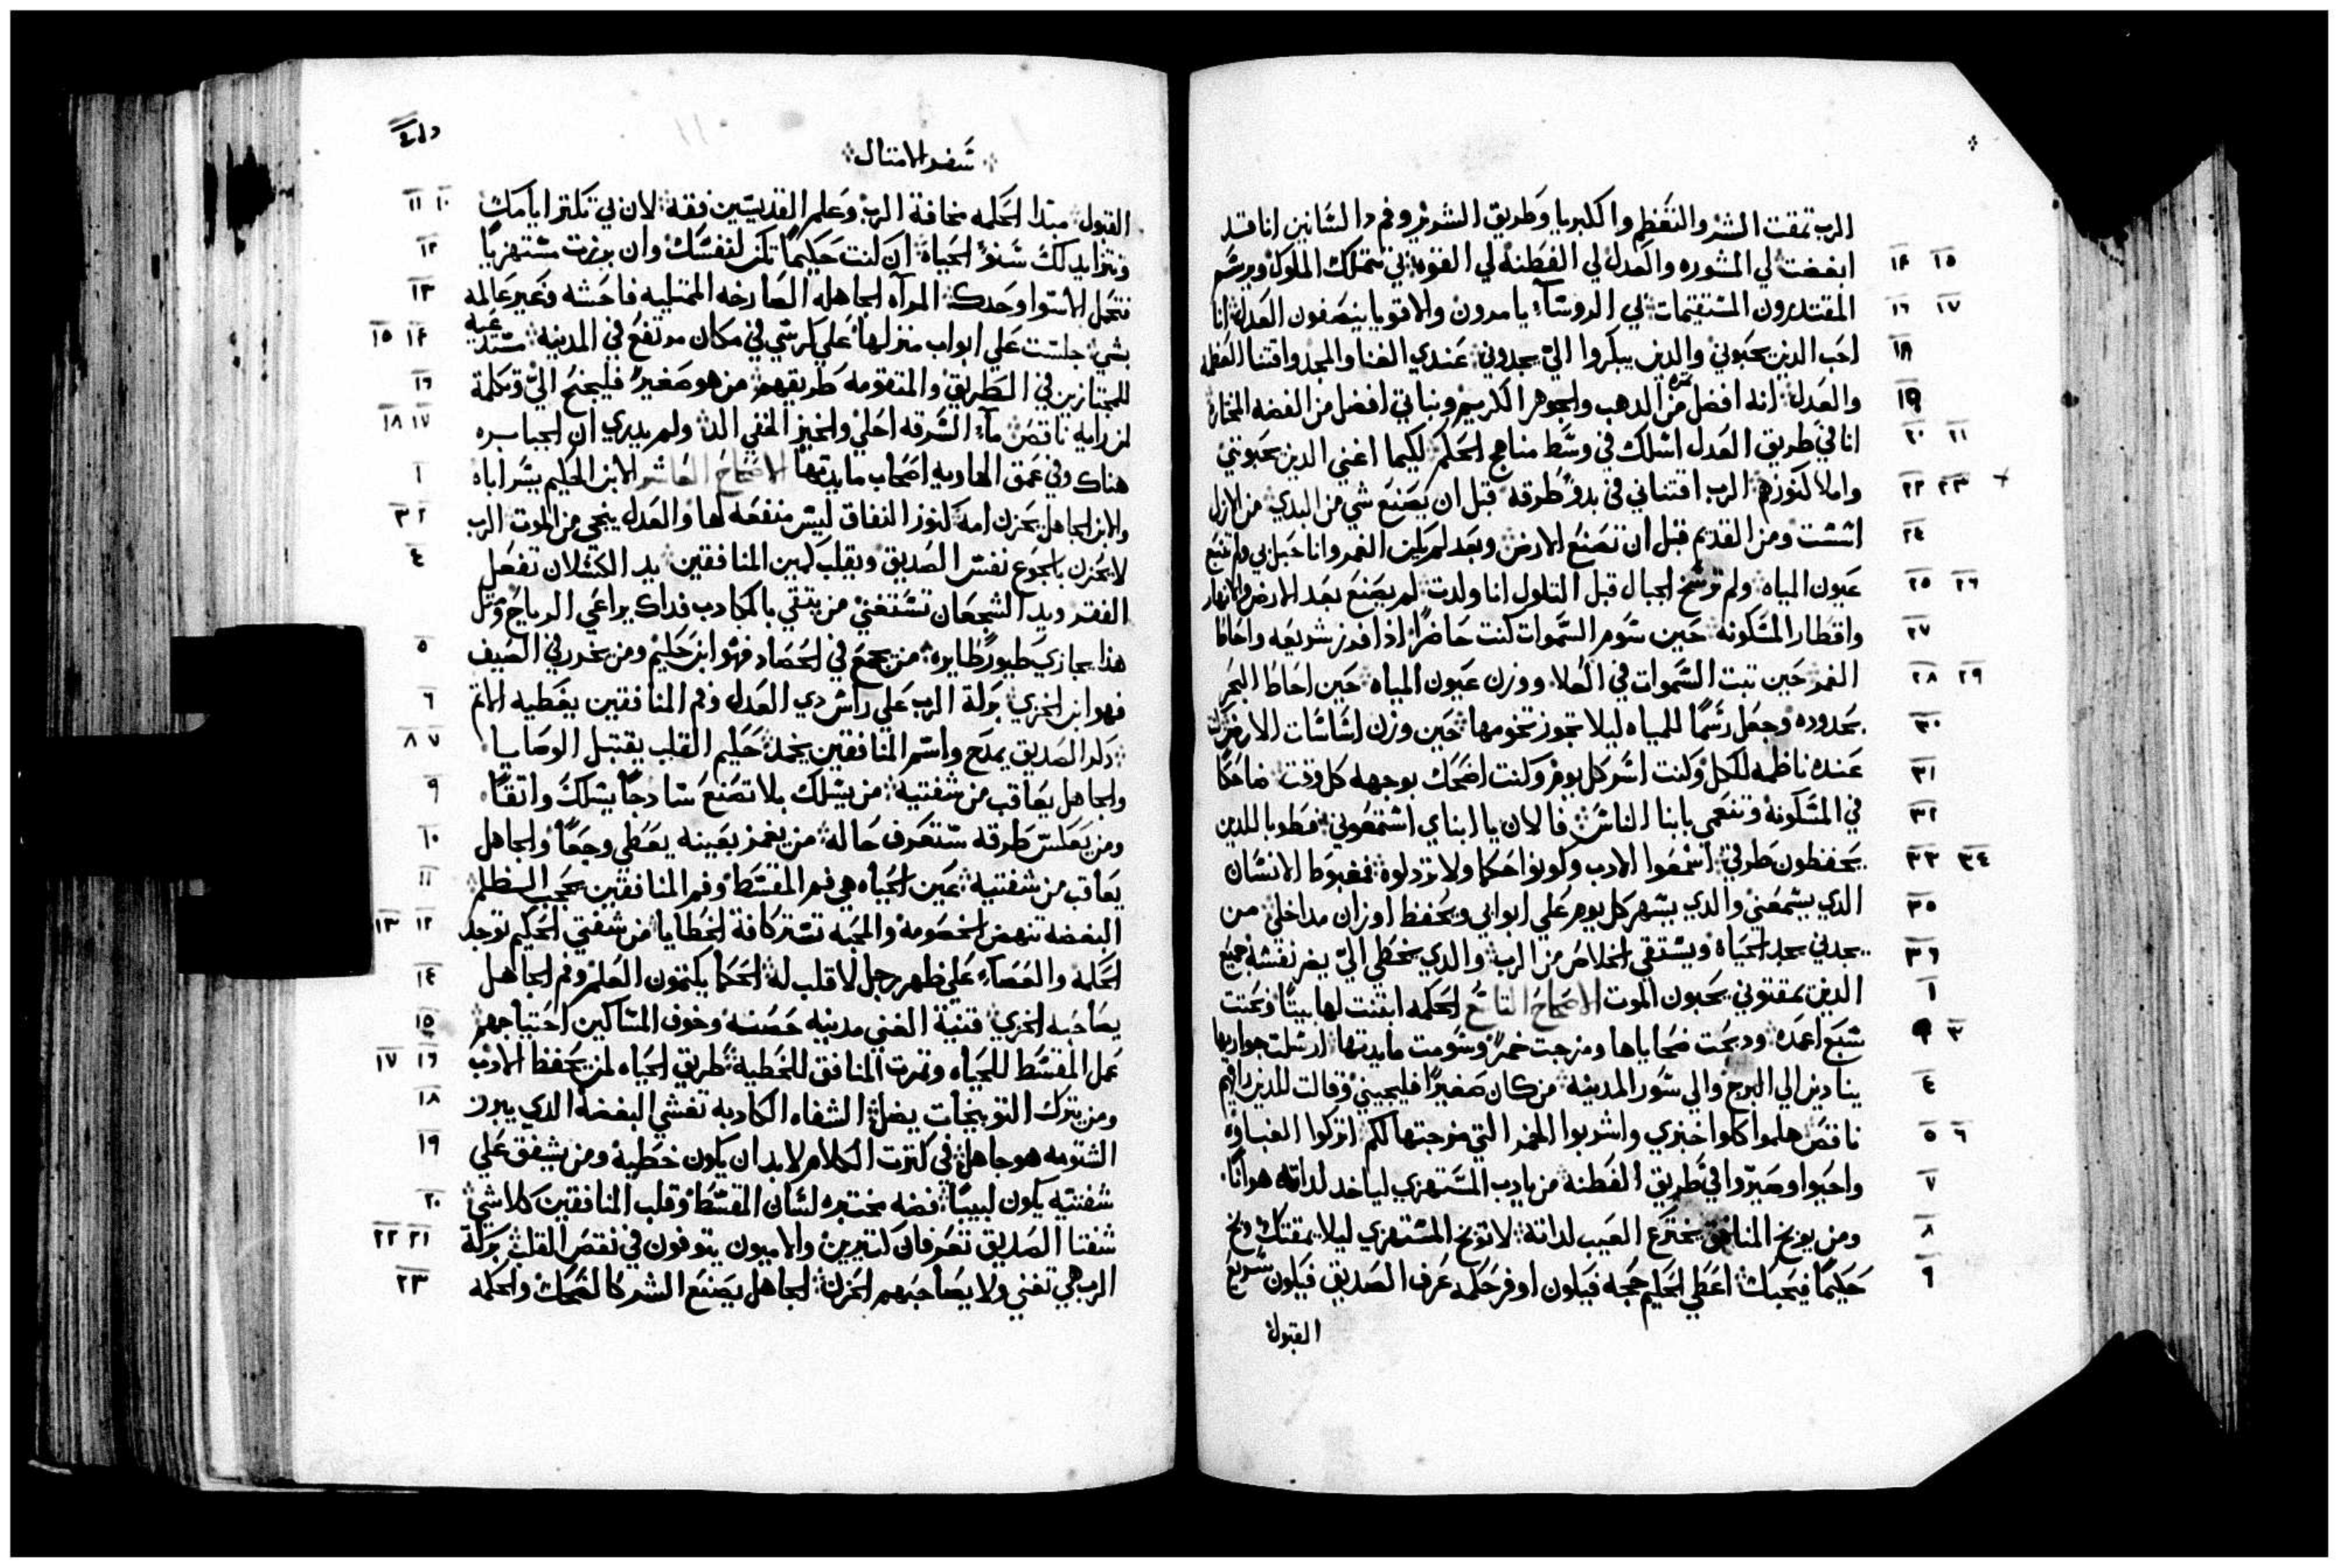 الرب تمقت الشر والتعظم والكبريا وطريق الشرير وفم دا لسانين انا قد
ابغضت لي المشوره والعدل لي الفطنه لي القوه بي تتملك الملوك ويرسم
١٤ ١٥
المقتدرون المستقيمات لي الروسآء يامرون والاقويا ينصفون العدل انا
١٦ ١٧
احب الدين يحبوني والدين يبكروا الي يجدوني عندي الغنا والمجد واقتنا العظمه
١٨
والعدل انه افضل ثمره من الدهب والجوهر الكريم ونباتي افضل من الفضه المختاره
١٩
انا في طريق العدل اسلك في وسط مناهج الحكم لكيما اغني الدين يحبونني
٢٠ ٢١
واملا كنوزهم الرب اقتناني في بدو طرقه قبل ان يصنع شي من البدي من الازل
٢٢ ٢٣
اسست ومن القديم قبل ان تصنع الارض وبعد لم يكن الغمر وانا حبل بي ولم تنبع
٢٤
عيون المياه ولم ترسخ الجبال قبل التلول انا ولدت لم يصنع بعد الارض والانهار
٢٥ ٢٦
واقطار المسكونه حين سوم السموات كنت حاضرًا ادا فرز شريعه واحاط
٢٧
الغمر حين تبت السموات في العلا ووزن عيون المياه حين احاط البحر
٢٨ ٢٩
بحدوده وجعل رسمًا للمياه ليلا تجوز تخومها حين وزن اساسات الارض كنت
٣٠
عنده ناظمه للكل وكنت اسر كل يوم وكنت اضحك بوجهه كل وقت ضاحكا
٣١
في المسكونه وتنعمي بابنا الناس فالان يا ابناي استمعوني فطوبا للدين
٣٢
يحفظون طرقي اسمعوا الادب وكونوا حكما ولا تردلوه فمغبوط الانسان
٣٣ ٣٤
الدي يسمعني والدي يسهر كل يوم علي ابوابي ويحفظ اوزان مداخلي من
٣٥
يجدني يجد الحياه ويستقي الخلاص من الرب والدي يخطي الي يضر نفسه جميع
٣٦
الدين يمقتوني يحبون الموت الاصحاح التاسع الحكمه ابتنت لها بيتا ونحتت
١
سبع اعمده ودبحت ضحاياها ومزجت خمرًا وسومت مايدتها ارسلت جواريها
٣
ينادين الي البرج والي سور المدينه من كان صغيرًا فليجيني وقالت للدين رايهم
٤
ناقص هلموا كلوا خبزي واشربوا الخمر التي مزجتها لكم اتركوا الغباوه
٥ ٦
واحيوا وصيروا في طريق الفطنه من يادب المستهزي لياخد لداته هوانًا
٧
ومن يوبخ المنافق يخترع العيب لداته لا توبخ المستهزي ليلا يمقتك وبخ
٨
حكيمًا فيحبك اعطي الحكيم حجه فيكون اوفر حكمه عرف الصديق فيكون سريع
٩
القبول
سفر الامتال
القبول مبتدا الحكمه مخافة الرب وعلم القديسين فقه لان بي تكتر ايامك
١٠ ١١
وتتزايد لك سنو الحياة ان كنت حكيمًا تكن لنفسك وان برزت مستهزيًا
١٢
فتحمل الاسوا وحدك المرآه الجاهله الصارخه الممتليه فاحشه وغير عالمه
١٣
بشي جلست علي ابواب منزلها علي كرسي في مكان مرتفع في المدينه مستدعيه
١٤ ١٥
للمجتازين في الطريق والمتقومه طريقهم من هو صغير فليجنح الي وتكلمة
١٦
لمن رايه ناقص مآء السرقه احلي والخبز الخفي الد ولم يدري ان الجبابره
١٧ ١٨
هناك وفي عمق الهاويه اصحاب مايدتها الاصحاح العاشر الابن الحكيم يسر اباه
١
والابن الجاهل يحزن امه كنوز النفاق ليس منفعه لها والعدل ينجي من الموت الرب
٢ ٣
لا يحزن بالجوع نفس الصديق ويقلب كمين المنافقين يد الكسلان تفعل
٤
الفقر ويد الشجعان تستغني من يتقي بالمكادب فداك يراعي الرياح ومتل
هدا يجازي طيورًا طايره من يجمع في الحصاد فهو ابن حكيم ومن يخدر في الصيف
٥
فهو ابن الخزي بركة الرب علي راس دي العدل وفم المنافقين يغطيه الاتم
٦
دكر الصديق بمدح واسم المنافقين يخمد حكيم القلب يقتبل الوصايا
٧ ٨
والجاهل يعاقب من شفتيه من يسلك بلا تصنع سادجًا يسلك واتقًا
٩
ومن يعكس طرقه ستعرف حاله من يغمز بعينه يعطي وجعًا والجاهل
١٠
يعاقب من شفتيه عين الحياه هي فم المقسط وفم المنافقين يحجب الظلم
١١
البغضه تنهض الخصومه والمحبه تستر كافة الخطايا من شفتي الحكيم توجد
١٢ ١٣
الحكمة والعصآء علي ظهر رجل لا قلب له الحكما يكتمون العلم وفم الجاهل
١٤
يصاحبه الخزي قنية الغني مدينه حصنه وخوف المساكين احتياجهم
١٥
عمل المقسط للحياه وتمرت المنافق للخطيه طريق الحياه لمن يحفظ الادب
١٦ ١٧
ومن يترك التوبيخات يضل الشفاه الكادبه تغشي البغضه الدي يبرز
١٨
الشتومه هو جاهل في كترت الكلام لا بد ان يكون خطيه ومن يشفق علي
١٩
شفتيه يكون لبيبا فضه مختبره لسان المقسط وقلب المنافقين كلا شي
٢٠
شفتا الصديق تعرفان كتيرين والاميون يتوفون في نقص القلب بركة
٢١ ٢٢
الرب هي تغني ولا يصاحبهم الحزن الجاهل يصنع الشر كالضحك والحكمه
٢٣